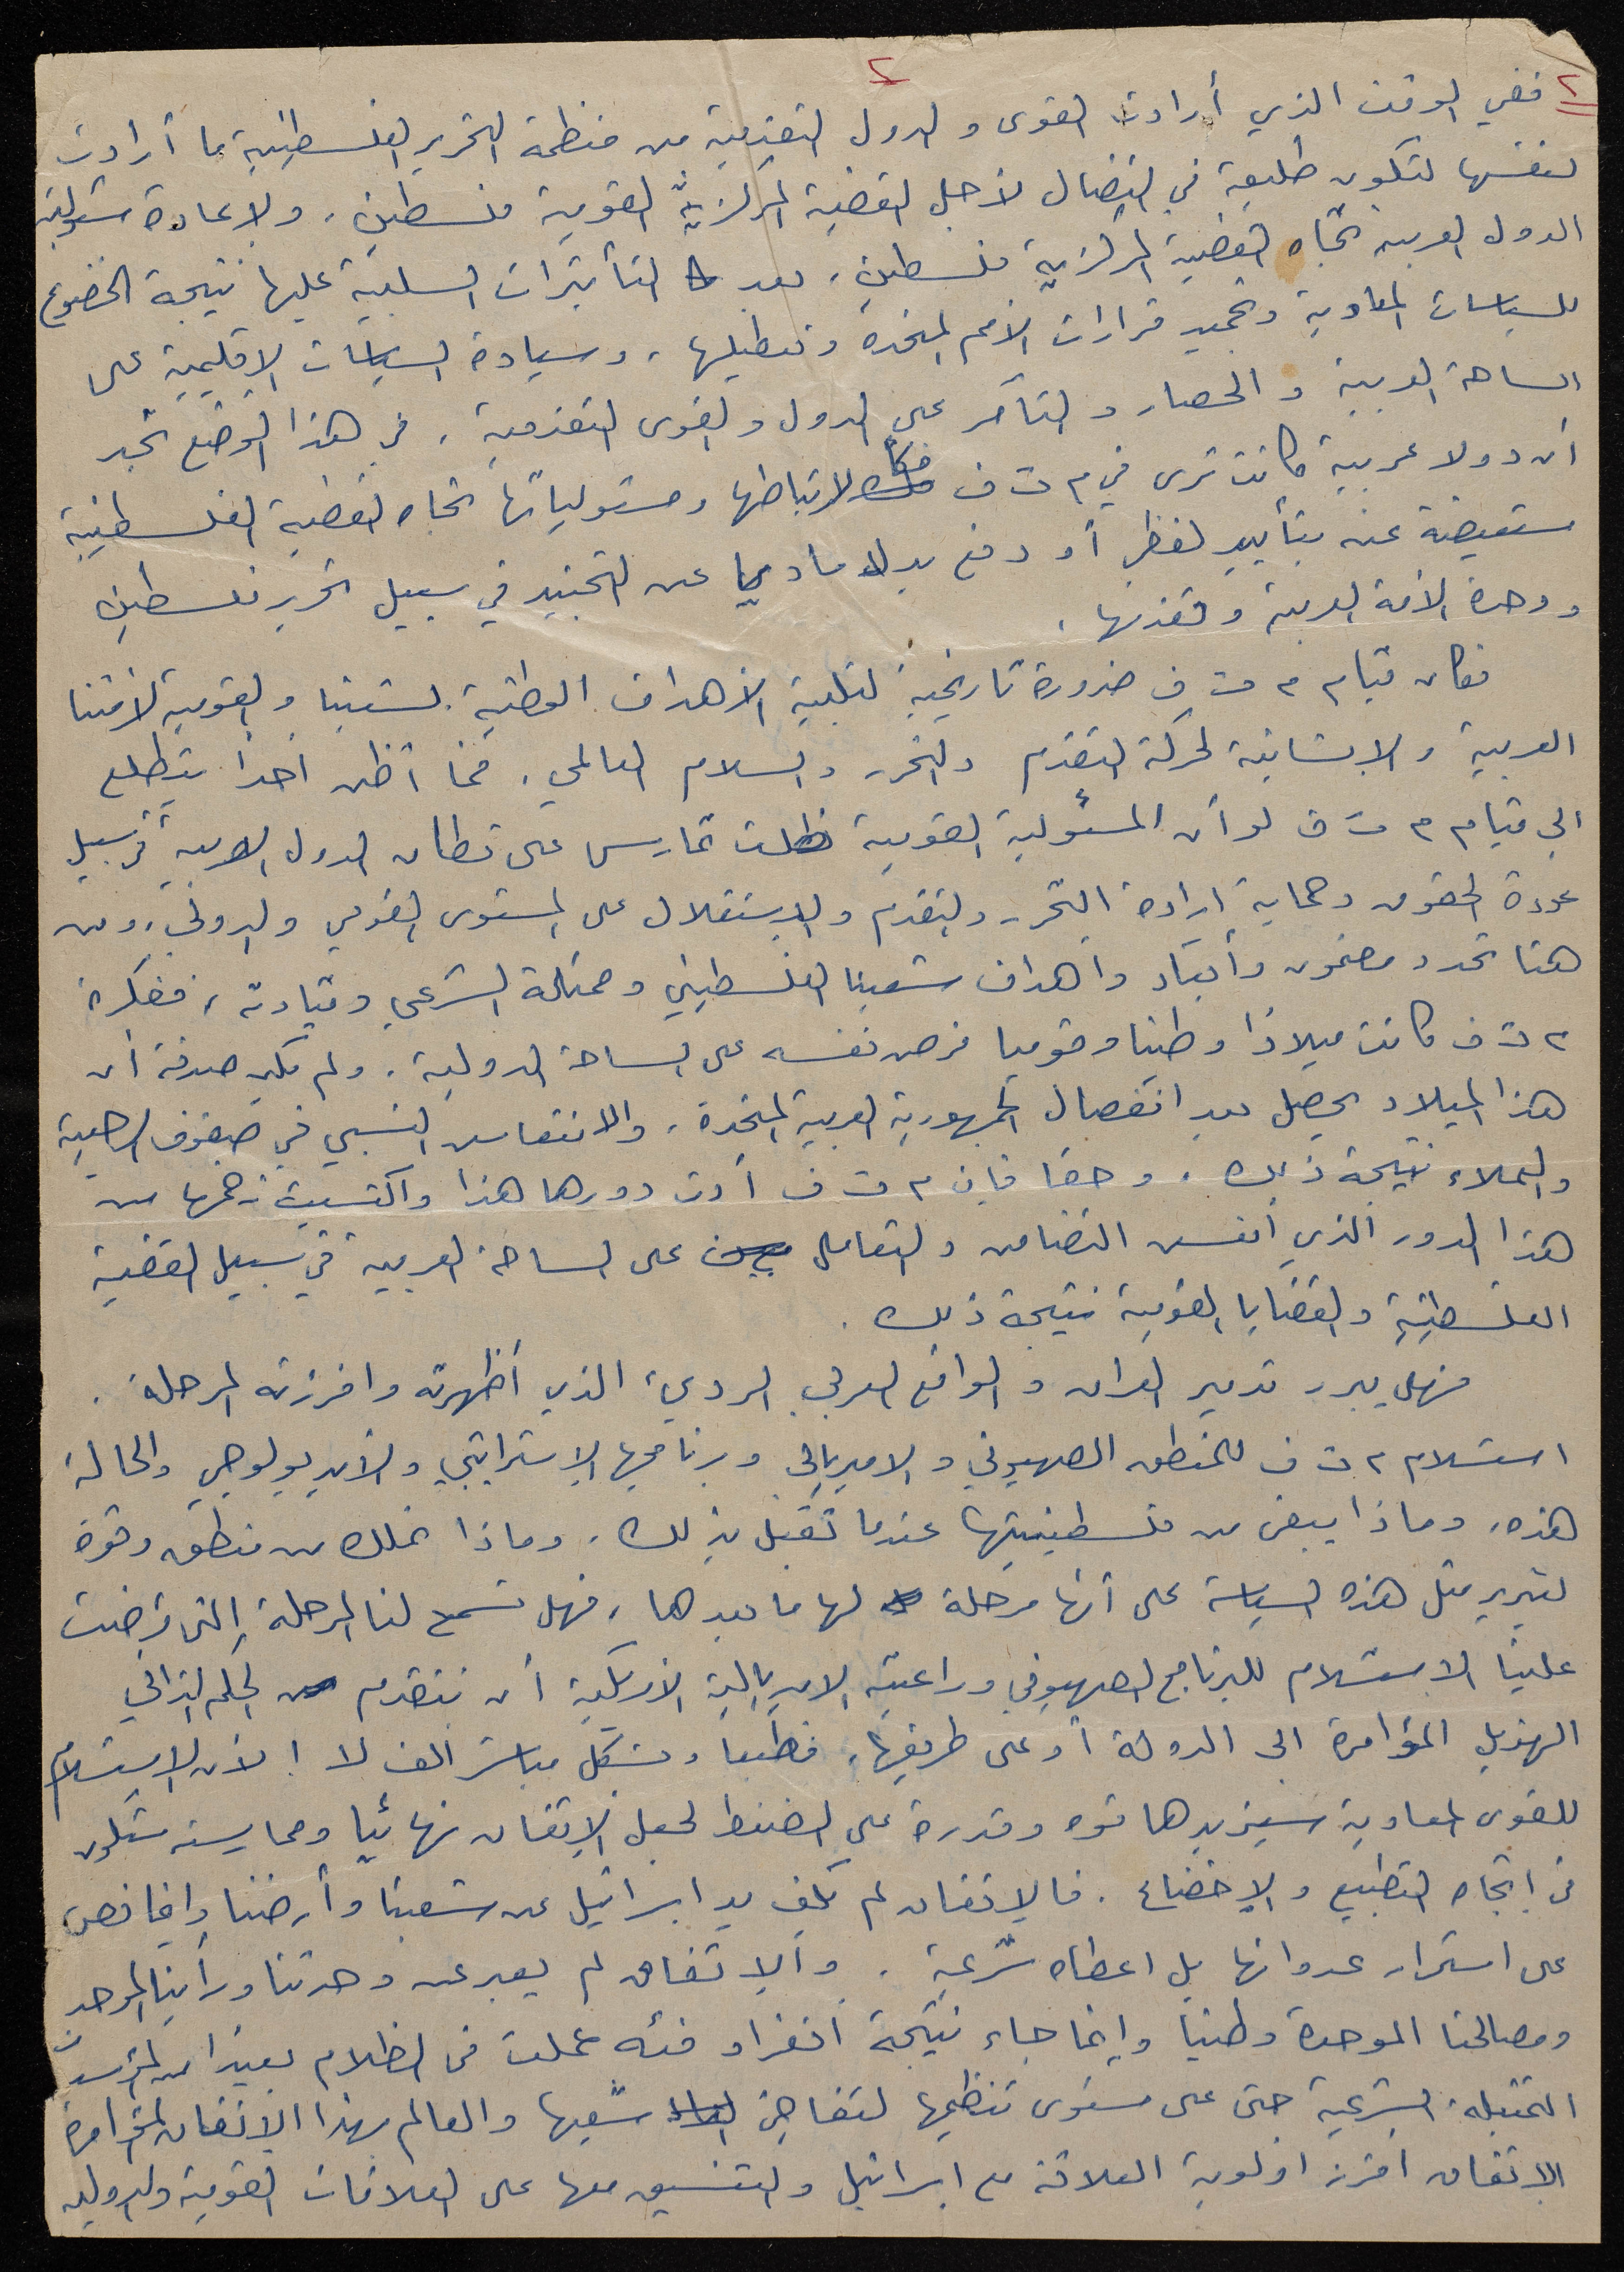 ٢
٢ ففي الوقت الذي أرادت القوى والدول التقدمية من منظمة التحرير الفلسطينية ما أرادت
لنفسها لتكون طليعة في النضال لأجل القضية المركزية القومية فلسطين، ولإعادة مسئولية
الدول العربية تجاه القضية المركزية فلسطين، بعد التأثيرات السلبية عليها نتيجة الخضوع
للسياسات المعادية وتجميد قرارات الأمم المتحدة وتعطيلها، وسيادة السياسات الإقليمية على
الساحة العربية والحصار والتآمر على الدول والقوى التقدمية، في هذا الوضع نجد
أن دولا عربية كانت ترى في م ت ف فكاً لارتباطها ومسئولياتها تجاه القضية الفلسطينية
مستعيضة عنه بتأييد لفظي أو دفع بدلا ماديا عن التجنيد في سبيل تحرير فلسطين
ووحدة الأمة العربية وتقدمها.
فكان قيام م ت ف ضرورة تاريخية لتلبية الأهداف الوطنية لشعبنا والقومية لأمتنا
العربية والانسانية لحركة التقدم والتحرر والسلام العالمي، فما أظن أحداً يتطلع
الى قيام م ت ف لو أن المسئولية القومية ظلت تمارس على نطاق الدول العربية في سبيل
عودة الحقوق وحماية إرادة التحرر والتقدم والاستقلال على المستوى القومي والدولي، ومن
هنا تحدد مضمون وأبعاد وأهداف شعبنا الفلسطيني وممثله الشرعي وقيادته، ففكرة
م ت ف كانت ميلاداً وطنيا وقوميا فرض نفسه على الساحة الدولية، ولم يكن صدفة أن
هذا الميلاد يحصل بعد انفصال الجمهورية العربية المتحدة، والانتعاش النسبي في صفوف الرجعية
والعملاء نتيجة ذلك، وحقا فإن م ت ف أدت دورها هذا واكتسبت زخمها من
هذا الدور الذي أنعش التضامن والتعامل على الساحة العربية في سبيل القضية
الفلسطينية والقضايا القومية نتيجة ذلك.
فهل يبرر تدمير العراق والواقع العربي الرديء الذي أظهرته وافرزته المرحلة.
استسلام م ت ف للمنطق الصهيوني والامبريالي وبرنامجها الاستراتيجي والأيديولوجي والحالة
هذه، وماذا يبقى من فلسطينيتها عندما تقبل بذلك، وماذا نملك من منطق وقوة
لتبرير مثل هذه السياسة على أنها مرحلة لها ما بعدها، فهل تسمح لنا المرحلة التي فرضت
علينا الاستسلام للبرنامج الصهيوني وراعيته الامبريالية الأمريكية أن نتقدم من الحكم الذاتي
الهزيل المؤامرة الى الدولة أو على طريقها، فطبعا وبشكل مباشر ألف لا ! لأن الاستسلام
للقوى المعادية سيزيدها قوه وقدرة على الضغط لجعل الاتفاق نهائياً وممارسته ستكون
في اتجاه التطبيع والإخضاع. فالاتفاق لم يكف يد اسرائيل عن شعبنا وأرضنا وإنما نص
على استمرار عدوانها بل اعطاه شرعية، والاتفاق لم يعبر عن وحدتنا ورأينا الموحد
ومصالحنا الموحدة وطنياً وإنما جاء نتيجة انفراد فئه عملت في الظلام بعيدا عن المؤسسات
الممثلة الشرعية حتى على مستوى تنظيمها لتفاجئ شعبها والعالم بهذا الاتفاق المؤامرة
الاتفاق افرز أولوية العلاقة مع اسرائيل والتنسيق معها على العلاقات القومية والدوليه